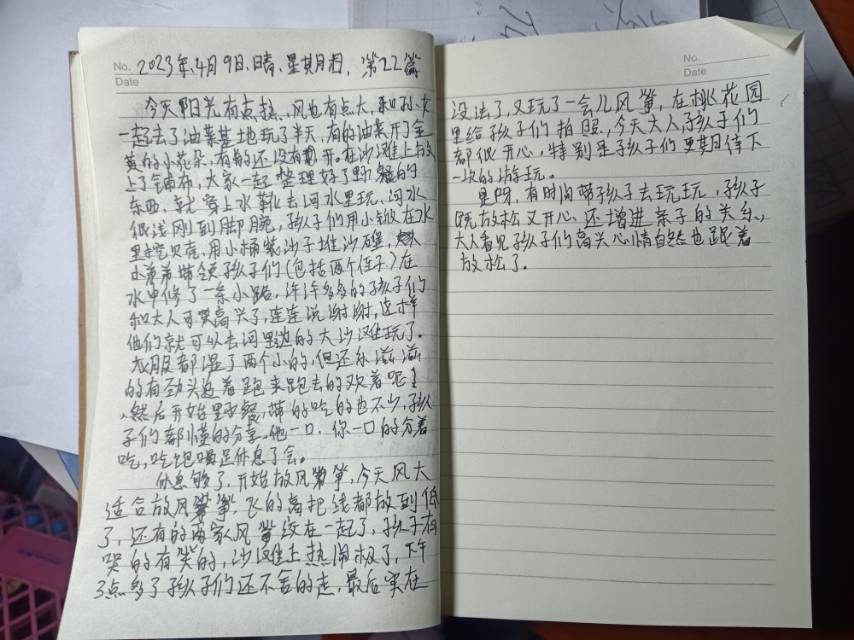 No. 2023年4月9日.晴.星期日.第22篇
Date
今天阳光有点热.风也有点大,和小女
一起去了油菜基地玩了半天,有的油菜开了金
黄的小花朵.有的还没有开.在沙滩上放
上了铺布,大家一起整理好了野餐的
东西.就穿上水靴去河水里玩.河水
很浅刚到脚腕,孩子们用小锨在水
里挖贝壳,用小桶装沙子堆沙堡,
小弟弟带领孩子们(包括两个侄子)在
水中修了一条小路,许许多多的孩子们
和大人可高兴了,连连说谢谢,这样
他们就可以去河里边的大沙滩玩了.
衣服都湿了两个小的,但还乐滋滋
的有劲头边着跑来跑去的欢着呢!
.然后开始野餐,带的吃的也不少,孩
子们都懂的分享.他一口.你一口的分着
吃,吃饱喝足休息了会。
休息够了.开始放风筝,今天风大
适合放风筝,飞的高把线都放到低
了,还有的两家风筝绞在一起了,孩子有
哭的有笑的,沙滩上热闹极了,下午
3点多了孩子们还不舍的走,最后实在
No.
Date
没法了,又玩了一会儿风筝,在桃花园
里给孩子们拍照,今天大人孩子们
都很开心,特别是孩子们更期待下
一次的游玩。
是呀.有时间带孩子去玩玩,孩子
既放松又开心.还增进亲子的关系,
大人看见孩子们高兴心情自然也跟着
放松了.